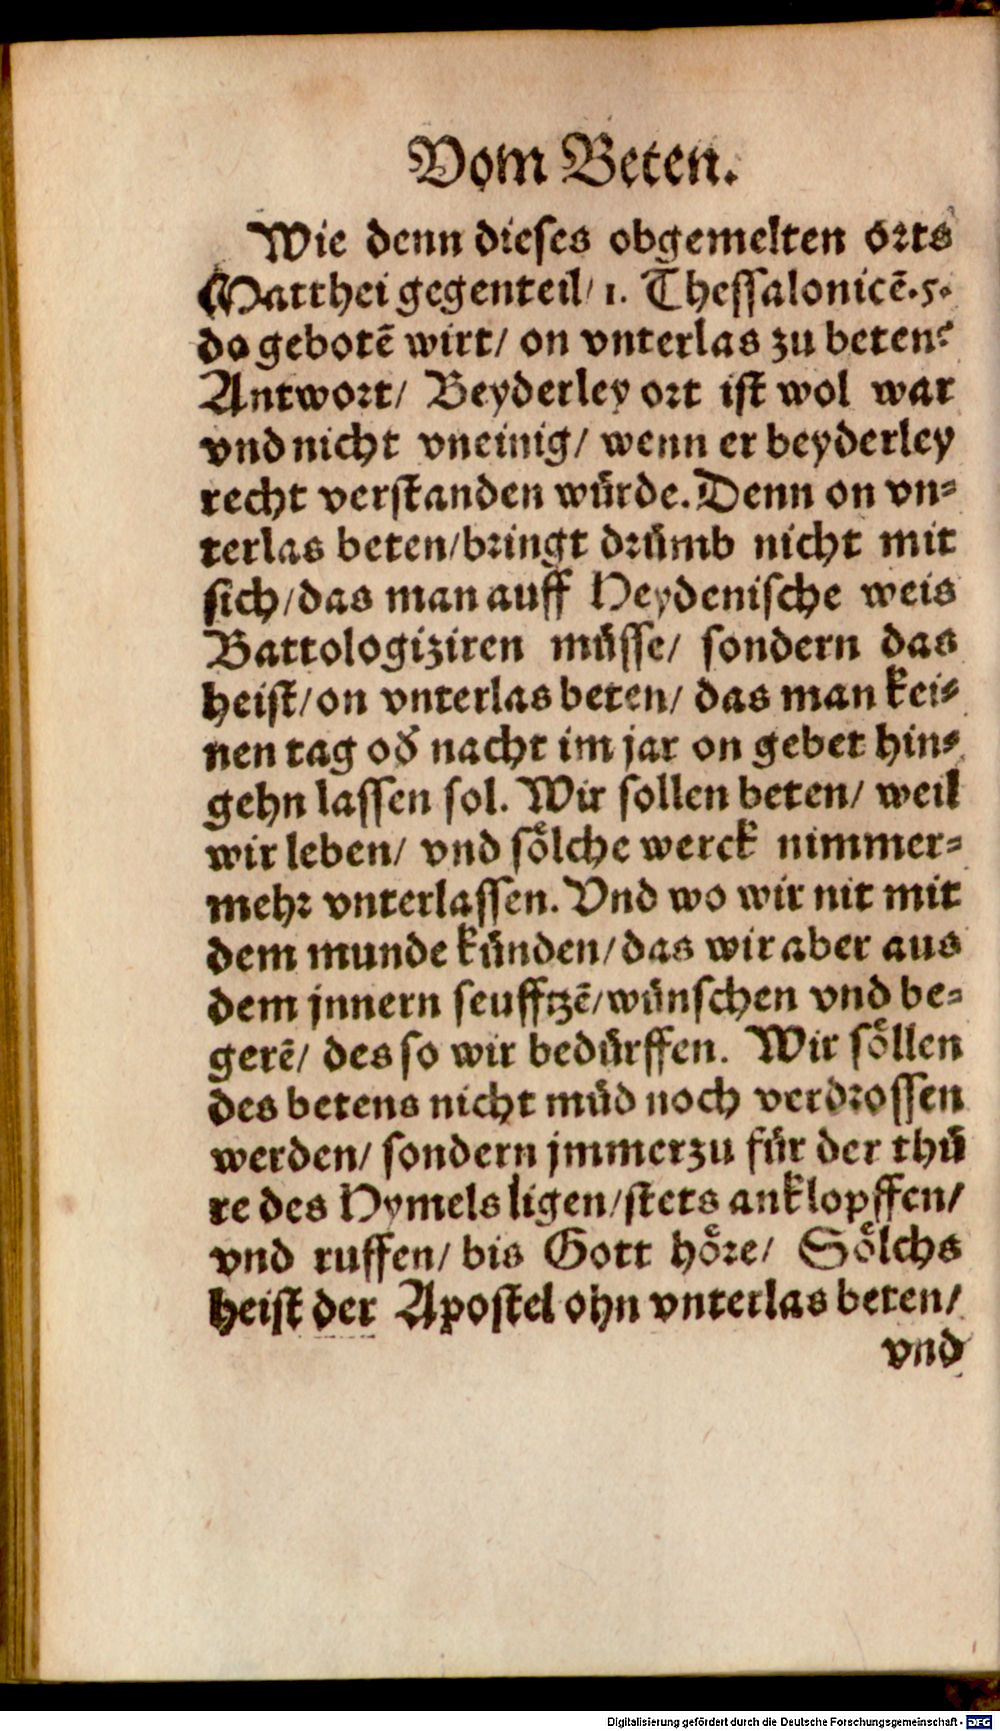 Vom Beten.
Wie denn dieses obgemelten orts
Matthei gegenteil/ 1. Thessalonicē.5.
do gebotē wirt/ on vnterlas zu beten?
Antwort/ Beyderley ort ist wol war
vnd nicht vneinig/ wenn er beyderley
recht verstanden würde. Denn on vn⸗
terlas beten/bringt drümb nicht mit
sich/das man auff Heydenische weis
Battologiziren müsse/ sondern das
heist/on vnterlas beten/ das man kei⸗
nen tag od̛ nacht im jar on gebet hin⸗
gehn lassen sol. Wir sollen beten/ weil
wir leben/ vnd sölche werck nimmer⸗
mehr vnterlassen. Vnd wo wir nit mit
dem munde künden/das wir aber aus
dem jnnern seufftzē/wünschen vnd be⸗
gerē/ des so wir bedürffen. Wir söllen
des betens nicht müd noch verdrossen
werden/ sondern jmmerzu für der thü
re des Hymels ligen/stets anklopffen/
vnd ruffen/ bis Gott höre/ Sölchs
heist der Apostel ohn vnterlas beten/
vnd
Digitalisierung gefördert durch die Deutsche Forschungsgemeinschaft - DFG